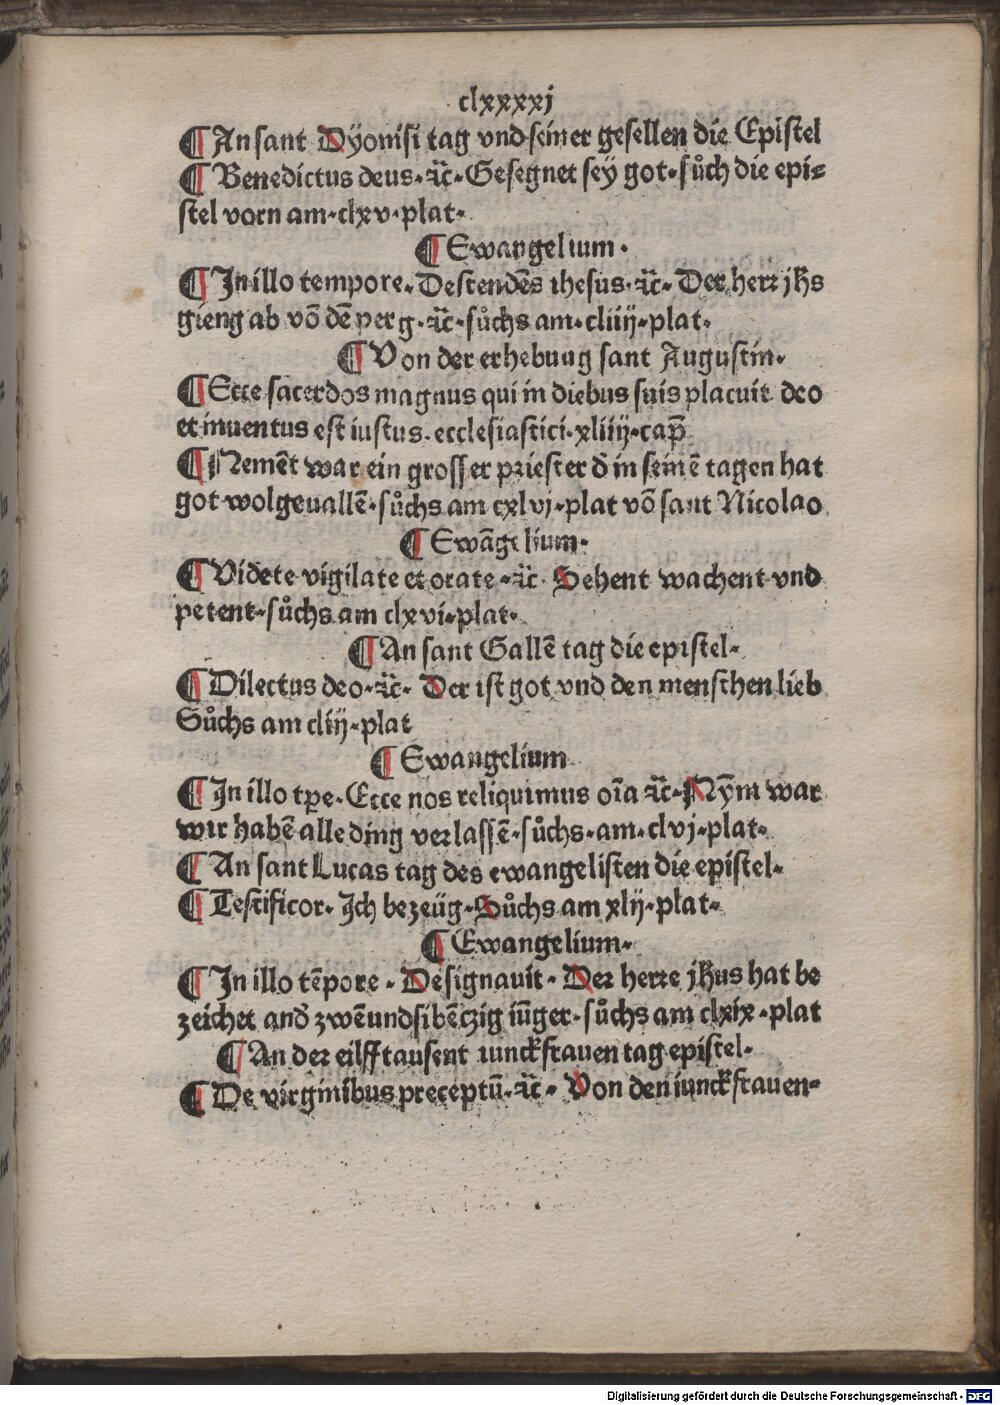 clxxxxj
¶ An sant Dÿonisi tag vnd seiner gesellen die Epistel
¶ Benedictus deus. ꝛc̈. Gesegnet seÿ got. sůch die epi⸗
stel vorn am. clxv. plat.
¶ Ewangelium.
¶ In illo tempore. Descendẽs ihesus. ꝛc̈. Der herꝛ jhs
gieng ab võ dẽ perg. ꝛc̈. sůchs am. cliiij. plat.
¶ Von der erhebung sant Augustin.
¶ Ecce sacerdos magnus qui in diebus suis placuit deo
et inuentus est iustus. ecclesiastici. xliiij. cap̃
¶ Nemẽt war ein grosser priester d in seinẽ tagen hat
got wolgeuallẽ. sůchs am cxlvj. plat võ sant Nicolao
¶ Ewãgelium.
¶ Videte vigilate et orate. ꝛc̈. Sehent wachent vnd
petent. sůchs am clxvi. plat.
¶ An sant Gallẽ tag die epistel.
¶ Dilectus deo. ꝛc̈. Der ist got vnd den menschen lieb
Sůchs am cliij. plat
¶ Ewangelium
¶ In illo tꝑe. Ecce nos reliquimus oĩa ꝛc̈. Nÿm war
wir habẽ alle ding verlassẽ. sůchs. am. clvj. plat.
¶ An sant Lucas tag des ewangelisten die epistel.
¶ Testificor. Ich bezeüg. Sůchs am xlij. plat.
¶ Ewangelium.
¶ In illo tẽpore. Designauit. Der herre jhus hat be
zeichet and̕ zwẽundsibẽczig iũger. sůchs am clxix. plat
¶ An der eilfftausent iunckfrauen tag epistel.
¶ De virginibus preceptũ. ꝛc̈. Von den iunckfrauen.
Digitalisierung gefördert durch die Deutsche Forschungsgemeinschaft - DFG